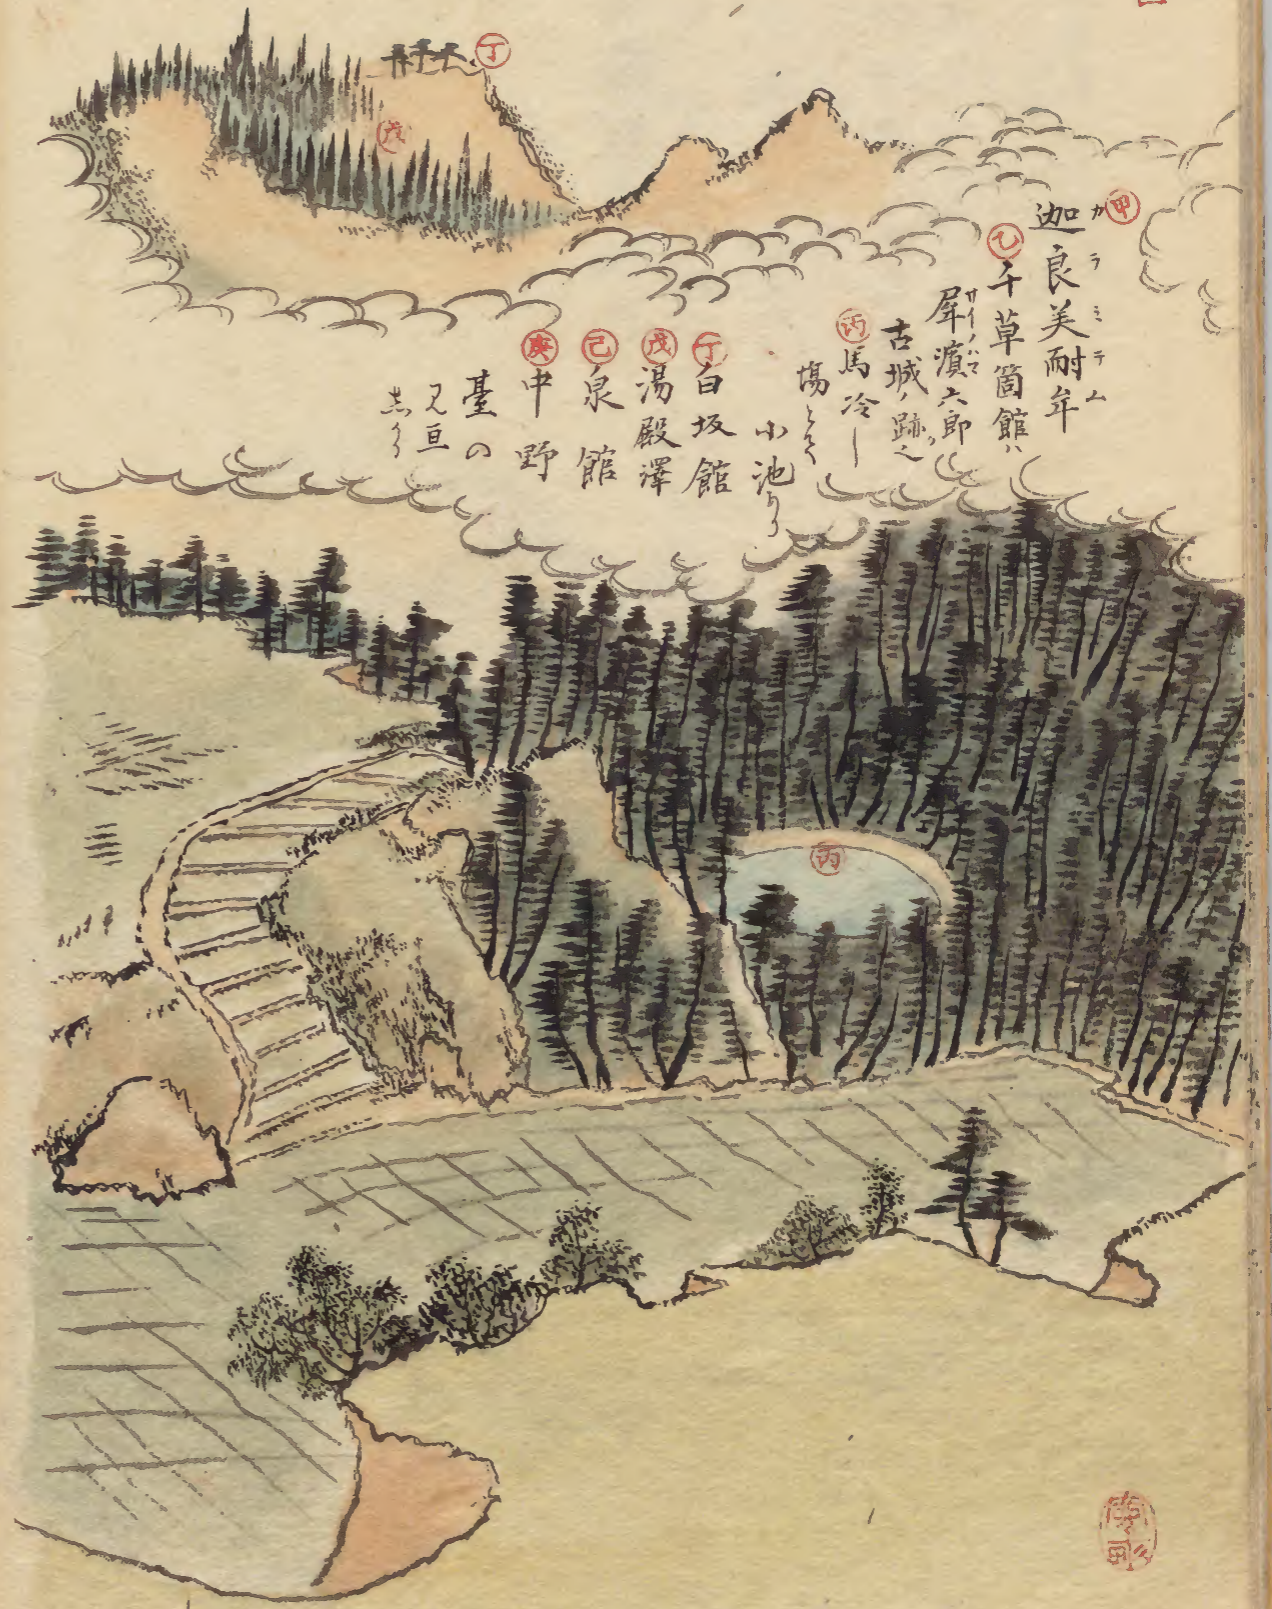 甲 迦良美耐牟
カラミテム
乙 千草箇館ハ
犀濵六郎
サイノハマ
古城ノ跡
丙 馬冷し
場とて
小池あり
丁 白坂館
戊 湯殿澤
己 泉館
庚 中野
臺の
丁
戊
丙